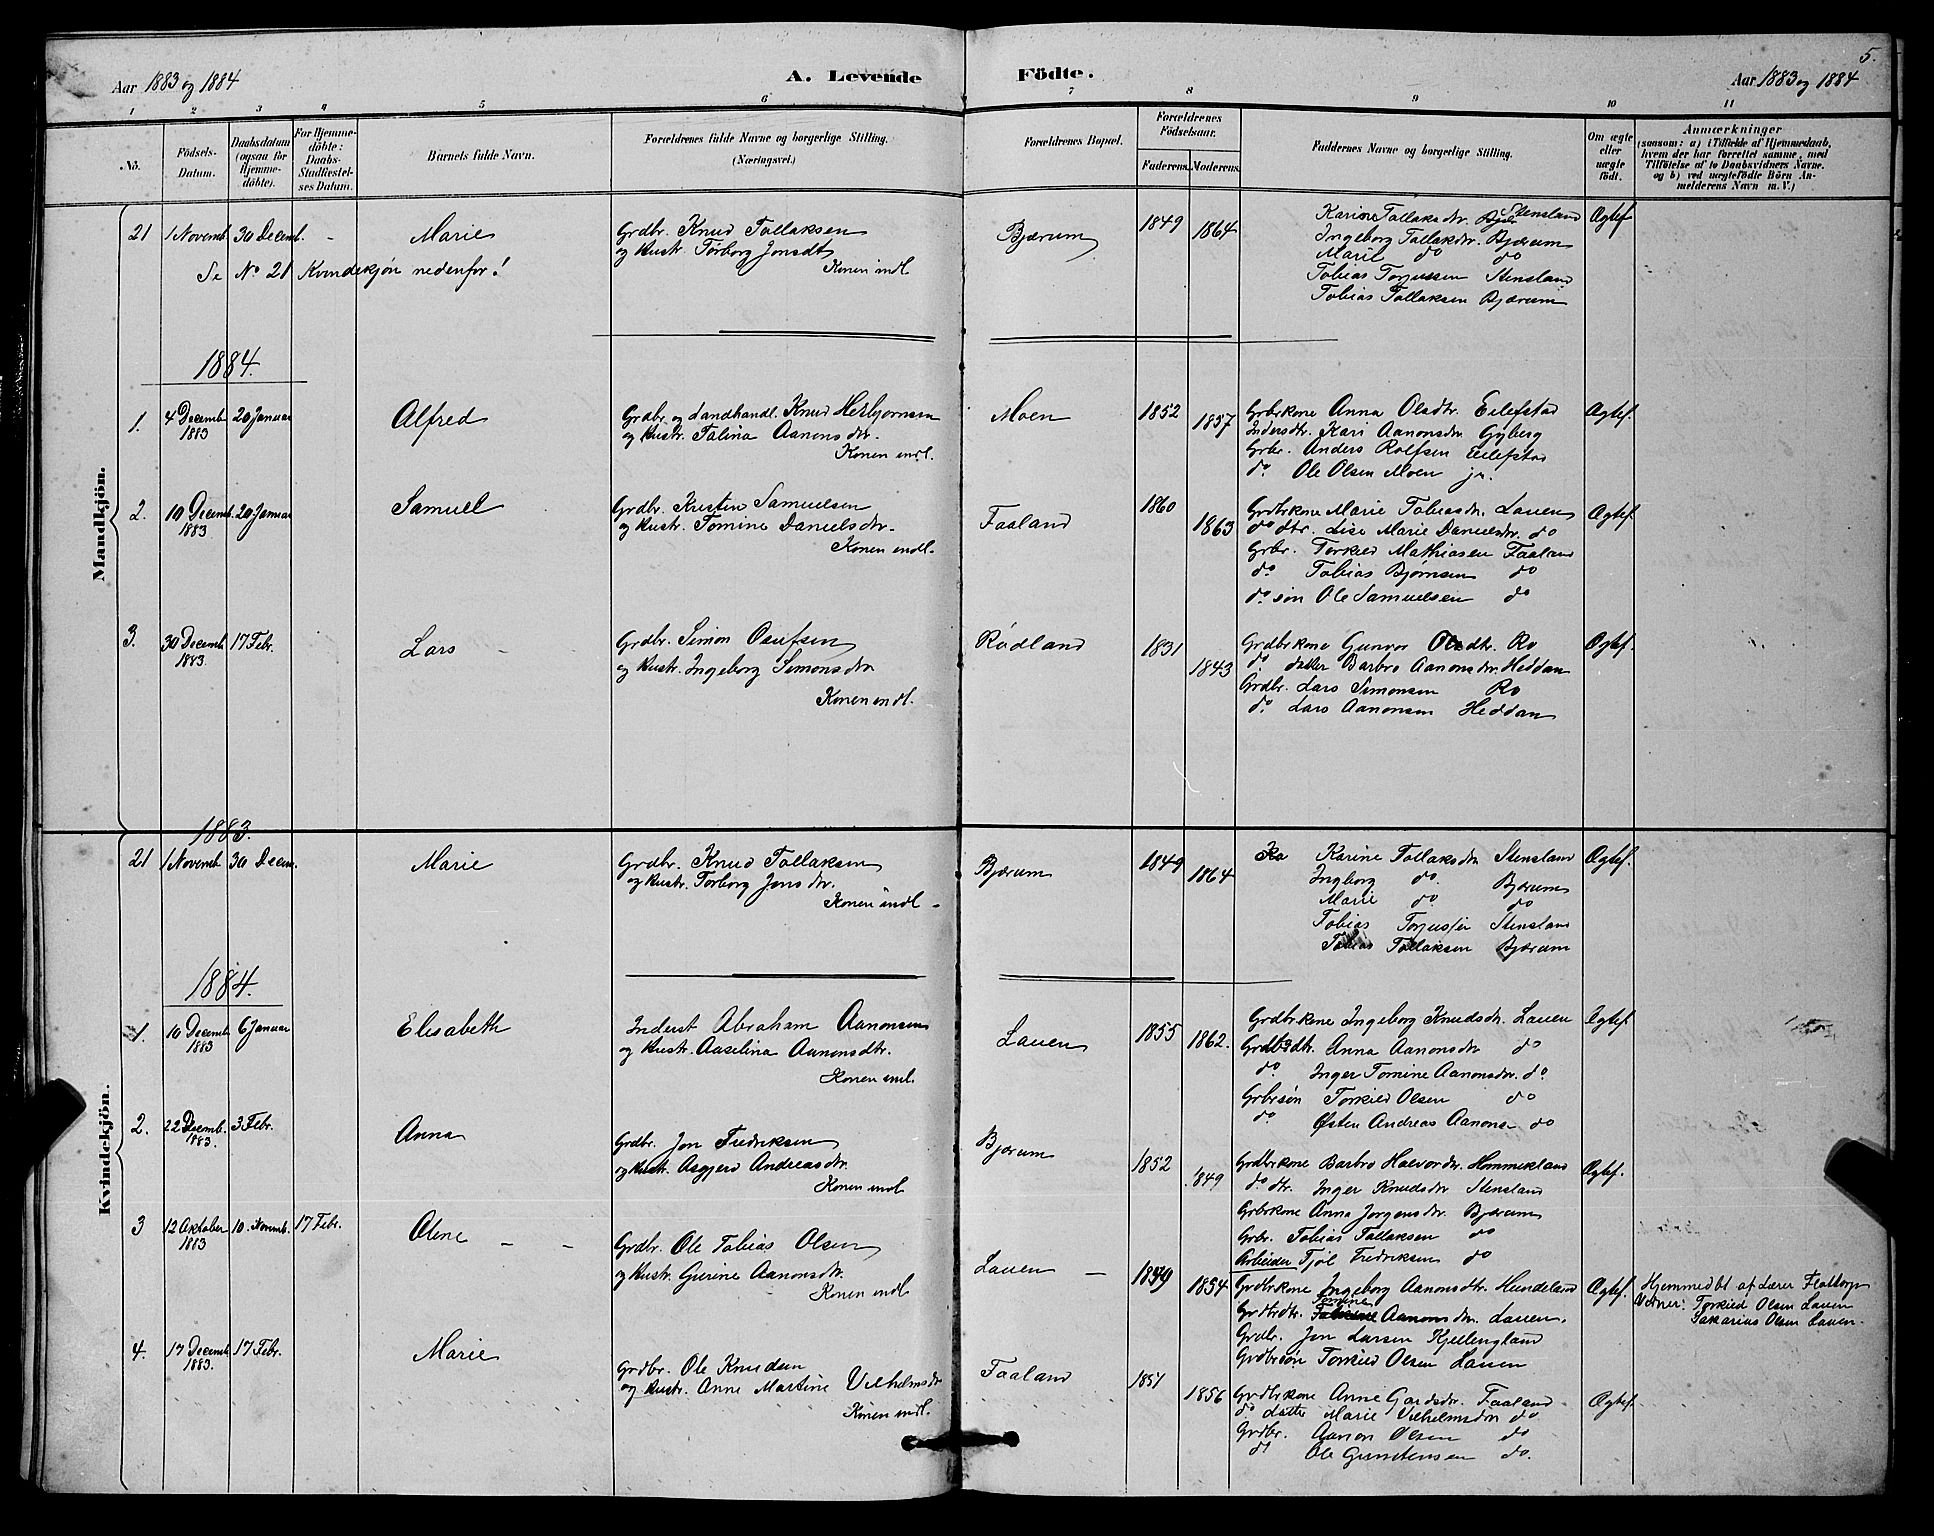 5.
Aar 1883 og 1884
A. Levende Födte.
Aar 1883 og 1884
1 2 3 4 5 6 7 8 9 10 11
No.
Födsels-Datum.
Daabsdatum (ogsaa for Hjemme-döbte).
For Hjemme-döbte: Daabs-Stadfæstel-ses Datum.
Barnets fulde Navn.
Forældrenes fulde Navne og borgerlige Stilling. (Næringsvei.)
Forældrenes Bopæl.
Forældrenes Födselsaar.
Faderens. Moderens.
Faddernes Navne og borgerlige Stilling.
Om ægte eller uægte födt.
Anmærkninger
(saasom: a) i Tilfælde af Hjemmedaab, hvem der har forrettet samme, med Tilföielse af to Daabsvidners Navne. og b) ved uægtefödte Börn An-melderens Navn m. V.)
Mandkjön.
21 1 Novemb. 30 Decemb. - Marie
Grdbr. Knud Tallaksen
og Hustr. Torborg Jonsdt
Konen indl.
Bjærum 1849 1864
Karine Tallaksdtr. Stensland
Ingeborg Tallaksdtr. Bjærum
Marie do do
Tobias Torjussen Stensland
Tobias Tallaksen Bjærum
Ægtef
Se No. 21 Kvindekjön nedenfor!
1884.
1. 4 Decemb. 1883 20 Januar Alfred
Grdbr. og Landhandl. Knud Herbjørnsen
og Hustr. Talina Aanonsdtr.
Konen indl.
Moen 1852 1857
Grbrkone Anna Olsdtr. Eilefstad
Indersdtr. Kari Aanonsdtr Gyberg
Grbr. Anders Rolfsen Eilefstad
do. Ole Olsen Moen jr.
Ægtef.
2. 10 Decemb. 1883 20 Januar Samuel
Grdbr. Kristen Samuelsen
og Hustr. Tomine Danielsdtr.
Konen indl.
Faaland 1860 1863
Grdbrkone Marie Tobiasdtr. Lauen
do dtr. Lise Marie Danielsdtr. do
Grbr. Torkild Mathiasen Faaland
do. Tobias Bjørnsen do
do. søn Ole Samuelsen do
Ægtef.
3. 30 Decemb. 1883. 17 Febr. Lars -
Grdbr. Simon Osufsen
og Hustr. Ingeborg Simonsdtr
Konen indl.
Rødland 1831 1843
Grdbrkone Gunvor Olsdtr. Ro
do datter Barbro Aanonsdtr. Heddan
Grdbr. Lars Simonsen Ro
do. Lars Aanonsen Heddan
Ægtef.
Kvindekjön.
1883.
21 1 Novemb. 30 Decem. Marie
Grdbr. Knud Tallaksen
og Hustr. Torborg Jonsdtr.
Konen indl -
Bjærum 1849 1864
Karine Tallaksdtr Stensland
Ingborg do. Bjærum
Marie do. do
Tobias Torjussen Stensland
Tobias Tallaksen Bjærum
Ægtef.
1884.
1. 10 Decemb. 1883 6 Januar Elisabeth
Inderst Abraham Aanonsen
og Hustr. Aaselina Aanonsdtr.
Konen indl.
Lauen 1855 1862.
Grdbrkone Ingeborg Knudsdtr. Lauen
Grdbrdtr. Anna Aanonsdtr do
do. Inger Tomine Aanonsdtr. do.
Grbrsøn Torkild Olsen do
do Østen Andreas Aanons- do
Ægtef.
2. 22 Decemb. 1883. 3 Febr. Anna
Grdbr. Jon Fredriksen
og Hustr. Asgjerd Andreasdtr.
Konen indl
Bjærum 1852 1849
Grdbrkone Barbro Halvordtr. Hommekland
do. dtr. Inger Knudsdtr Stensland
Grbrkone Anna Jørgensdtr. Bjærum
Grbr. Tobias Tallaksen do
Arbeider Tjøl Fredriksen do
Ægtef.
3 12 Oktober 1883 10. Novemb. 17 Febr. Olene - -
Grdbr. Ole Tobias Olsen
og Hustr. Gurine Aanonsdtr.
Konen indl
Lauen - 1849 1854
Grdbrkone Ingeborg Aanonsdtr. Hundeland
Grdbrdtr. Tomine Aanonsdtr. Lauen.
Grdbr. Jon Larsen Kjellingland
Grdbrsøn Torkild Olsen Lauen
Ægtef.
Hjemmedbt af Lærer Flottorp
Vidner: Torkild Olsen Lauen
Sakarias Olsen Lauen.
4. 17 Decemb. 1883. 17 Febr. Marie
Grdbr. Ole Knudsen
og Hustr. Anne Martine Vilhelmsdtr
Konen indl.
Faaland 1851 1856
Grdbrkone Anne Gardsdtr. Faaland
do datter Marie Vilhelmsdtr do
Grdbr. Aanon Olsen do
do Ole Gunstensen do.
Ægtef.